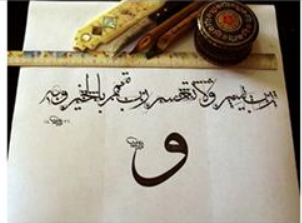 رب يسر ولا تعسر رب تمم بالخير وبه
و